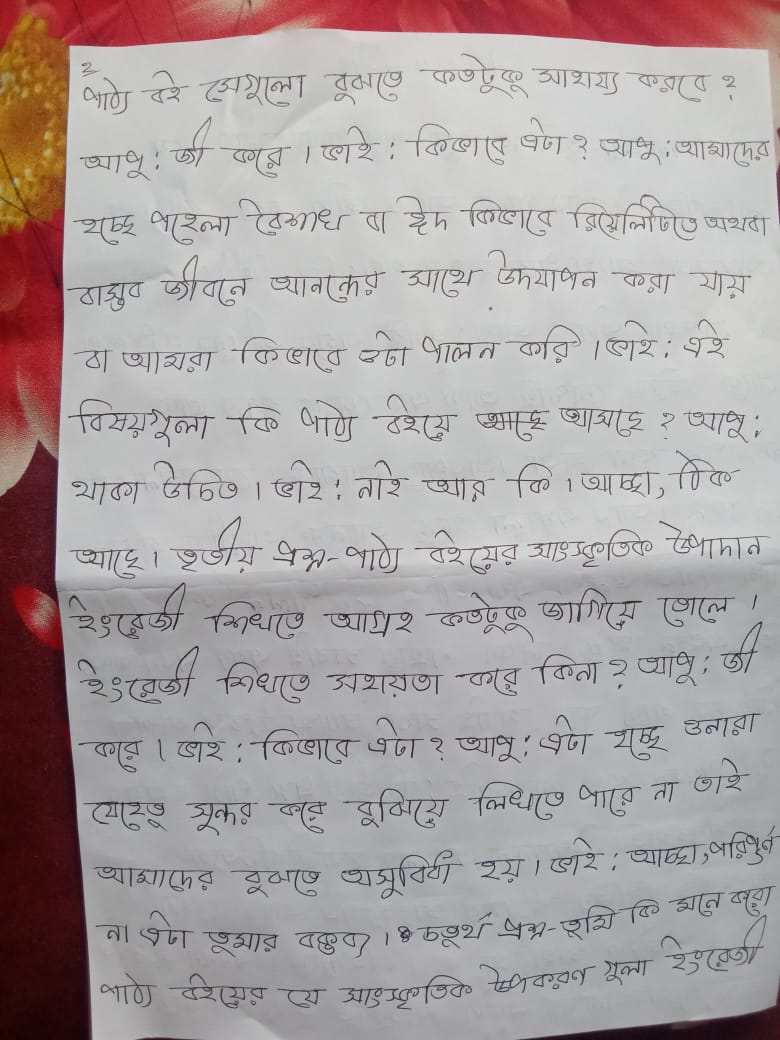 ২
পাঠ্য বই সেগুলো বুঝতে কতটুকু সাহায্য করবে ?
আপু : জী করে । ভাই : কিভাবে এটা ? আপু : আমাদের
হচ্ছে পহেলা বৈশাখ বা ঈদ কিভাবে রিয়েলিটিতে অথবা
বাস্তব জীবনে আনন্দের সাথে উদযাপন করা যায়
বা আমরা কিভাবে ওটা পালন করি । ভাই : এই
বিসয়গুলা কি পাঠ্য বইয়ে আসছে ? আপু :
থাকা উচিত । ভাই : নাই আর কি । আচ্ছা, ঠিক
আছে । তৃতীয় প্রশ্ন - পাঠ্য বইয়ের সাংস্কৃতিক উপাদান
ইংরেজী শিখতে আগ্রহ কতটুকু জাগিয়ে তোলে ।
ইংরেজী শিখতে সহায়তা করে কিনা ? আপু : জী
করে । ভাই : কিভাবে এটা ? আপু : এটা হচ্ছে ওনারা
যেহেতু সুন্দর করে বুঝিয়ে লিখতে পারে না তাই
আমাদের বুঝতে অসুবির্ধা হয় । ভাই : আচ্ছা, পরিপুর্ন
না এটা তুমার বক্তব্য । চতুর্থ প্রশ্ন - তুমি কি মনে করো
পাঠ্য বইয়ের যে সাংস্কৃতিক উপকরন গুলা ইংরেজী